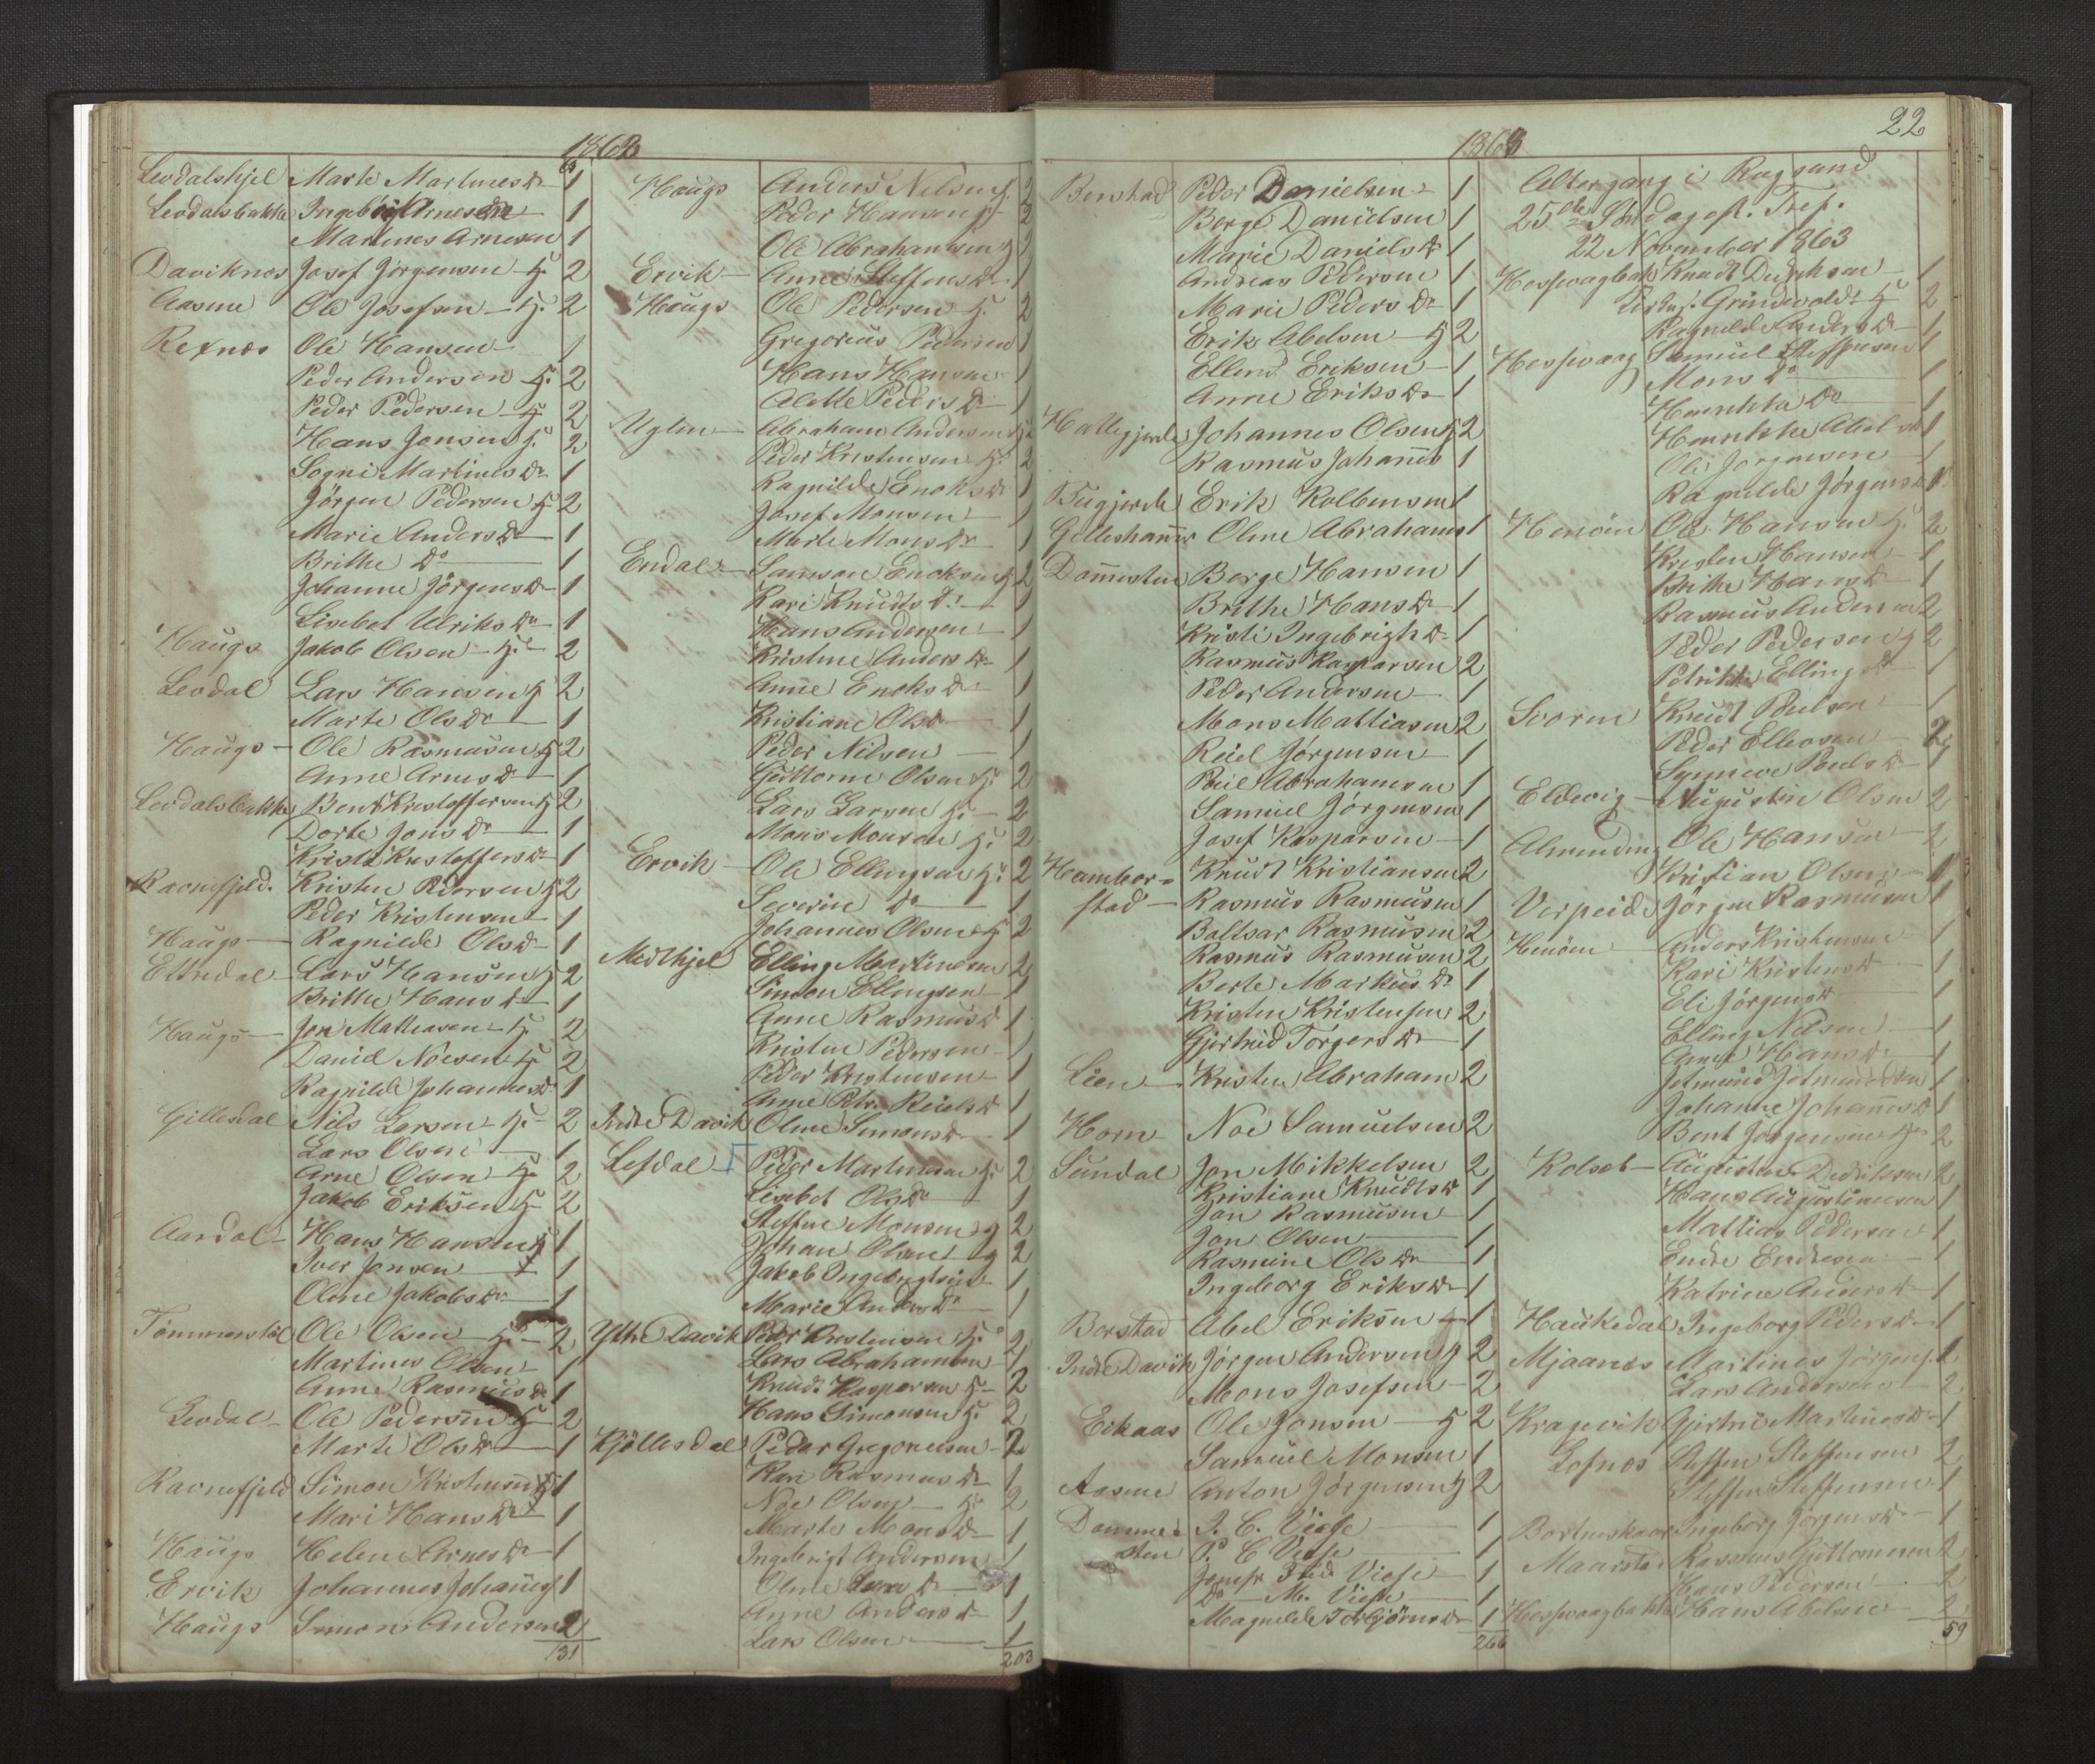 1863
Levdalshjel Marte Martines Dr 1
Levdalsbakke Ingebrigt Arnesen 1
Martines Arnesen 1
Daviknes Josef Jörgensen H. 2
Aasme Ole Josefsen H. 2
Rexnes Ole Hansen 1
Peder Andersen H. 2
Peder Pedersen H. 2
Hans Jensen H. 2
Martines Dr 1
Jörgen Pedersen H 2
Marie Anders Dr 1
Brithe Do 1
Johanne Jörgens Dr 1
Lisebet Ulriks Dr 1
Haugs Jakob Olsen H. 2
Levdal Lars Hansen H 2
Marte Ols Dr 1
Haugs Ole Rasmusen H 2
Anne Arnes Dr 1
Levdalsbakke Bent Kristoffersen H 2
Dorte Jons Dr 1
Kristi Kristoffers Dr 1
Ravnefjeld Kristen Pedersen H 2
Peder Kristensen 1
Haugs Ragnilde Ols Dr 1
Endal Lars Hansen H 2
Brithe Hans Dr 1
Haugs Jon Mathiasen H 2
Daniel Noesen H 2
Ragnilde Johannes Dr 1
Gillesdal Nils Larsen H 2
Lars Olsen 1
Arne Olsen H 2
Jakob Eriksen H 2
Aardal Hans Hansen 1
Iver Jonsen 1
Oline Jakobs Dr 1
Tommerstöl Ole Olsen H. 2
Martines Olsen 1
Anne Rasmus Dr 1
Levdal Ole Pedersen H 2
Marte Ols Dr 1
Ravnefjeld Simon Kristensen 1
Mari Hans Dr 1
Haugs Helene Arnes Dr 1
Ervik Johannes Johannes 1
Haugs Simon Andersen 2
131
Haugs Anders Nilsen H. 2
Peder Hansen H 2
Ole Abrahamsen H 2
Ervik Anne Steffens Dr 1
Haugs Ole Pedersen H. 2
Gregorius Pedersen 1
Hans Hansen 1
Alette Peders Dr 1
Uglen Abraham Andersen H 2
Peder Kristensen H. 2
Ragnilde Enoks Dr 1
Josef Monsen 1
Marte Mons Dr 1
Endal Samson Enoksen H 2
Kari Knuds Dr 1
Hans Andersen 1
Kristine Anders Dr 1
Anne Enoks Dr 1
Kristiane Ols Dr 1
Peder Nilsen 1
Guttorm Olsen H. 2
Lars Larsen H. 2
Mons Monsen H. 2
Ervik Ole Ellingsen H. 2
Severin Do 1
Johannes Olsen H 2
Midthjel Elling Martinesen 2
Simon Ellingsen 1
Anne Rasmus Dr 1
Kristen Pedersen 1
Peder Kristensen 1
Anne Reiels Dr 1
Indre Davik Oline Simons Dr 1
Lefdal Peder Martinesen H. 2
Lisebet Ols Dr 1
Steffen Monsen H 2
Johan Olsen H 2
Jakob Ingebrigtsen 1
Marie Anders Dr 1
Ytre Davik Peder Kristensen H. 2
Lars Abrahamsen 1
Knud Kaspersen H 2
Hans Simonsen H. 2
Kjöllesdal Peder Gregoriusen 2
Kari Rasmus Dr 1
Noe Olsen H. 2
Marte Mons Dr 1
Ingebrigt Andersen 1
Oline Lars Dr 1
Anne Anders Dr 1
Lars Olsen 1
203
22
1863
Berstad Peder Danielsen 1
Berge Danielsen 1
Marie Daniels Dr 1
Andreas Pedersen 1
Marie Peders Dr 1
Erik Abelsen H 2
Ellend Eriksen 1
Anne Eriks Dr 1
Hallegjerde Johannes Olsen H 2
Rasmus Johannes 1
Tuegjerde Erik Kolbensen 1
Gilleshammer Oline Abrahams 1
Dommesten Berge Hansen 1
Brithe Hans Dr 1
Kristi Ingebrigts Dr 1
Rasmus Kasparsen 2
Peder Andersen 1
Mons Mattiasen 2
Reiel Jörgensen 1
Poul Abrahamsen 1
Samuel Jörgensen 1
Josef Kasparsen 1
Humborstad Knudt Kristiansen 2
Rasmus Rasmusen 1
Baltsar Rasmusen 2
Rasmus Rasmusen 2
Berte Markus Dr 1
Kristen Kristensen 2
Gjertrud Torgers Dr 1
Lien Kristen Abraham 2
Horn Noe Samuelsen 2
Sundal Jon Mikkelsen 2
Kristiane Knudts Dr 1
Jon Rasmusen 1
Jon Olsen 1
Rasmine Ols Dr 1
Ingeborg Eriks Dr 1
Berstad Abel Eriksen 1
Indre Davik Jörgen Andersen H 2
Mons Josefsen 2
Eikaas Ole Jonsen H 2
Samuel Monsen 1
Aasme Anton Jörgensen H 2
Dommesten J. C. Viese 1
P. C Viese 1
Jomfr Viese 1
Do M. Viese 1
Magnilde Torbjörns Dr 1
266
Altergang i Rugsund
25de Söndag eft. Tref.
22 November 1863
Hessevaagbak Knudt Dedriksen 1
Grundvoldt H 2
Ragnilde Anders Dr 1
Hessevaag Samuel Steffensen 1
Mons Do 1
Henrikka Do 1
Henrikke Abels Dr 1
Ole Jorgensen 1
Ragnilde Jörgens Dr 1
Henöen Ole Hansen H. 2
Kristen Hansen 1
Brithe Hans Dr 1
Rasmus Andersen 2
Peder Pedersen H 2
Petrikke Ellings Dr 1
Svoren Knudt Poulsen 1
Peder Elliasen 2
Synneve Pouls Dr 1
Eldevig Augustin Olsen 2
Almending Ole Hansen 2
Kristian Olsen 1
Verpeide Jörgen Rasmusen 1
Henöen Anders Kristensen 1
Kari Kristens Dr 1
Eli Jörgens Dr 1
Elling Nilsen 1
Anne Hans Dr 1
Jetmund Jetmundsen 1
Johanne Johannes Dr 1
Bent Jörgensen H 2
Kolset Augustin Dedriksen 2
Hans Augustinusen 1
Mattias Pedersen 1
Endre Endresen 1
Katrine Anders Dr 1
Haukedal Ingeborg Peders Dr 1
Mjaanes Martines Jörgens. 1
Lars Andersen 2
Kragevik Gjertru Martines Dr 1
Lefnes Steffen Steffensen 2
Steffen Steffensen 1
Bortneskaar Ingeborg Jörgens Dr 1
Maarstad Rasmus Guttormsen 2
Hans Pedersen 2
Hessevaagbakke Hans Abelsen 2
59